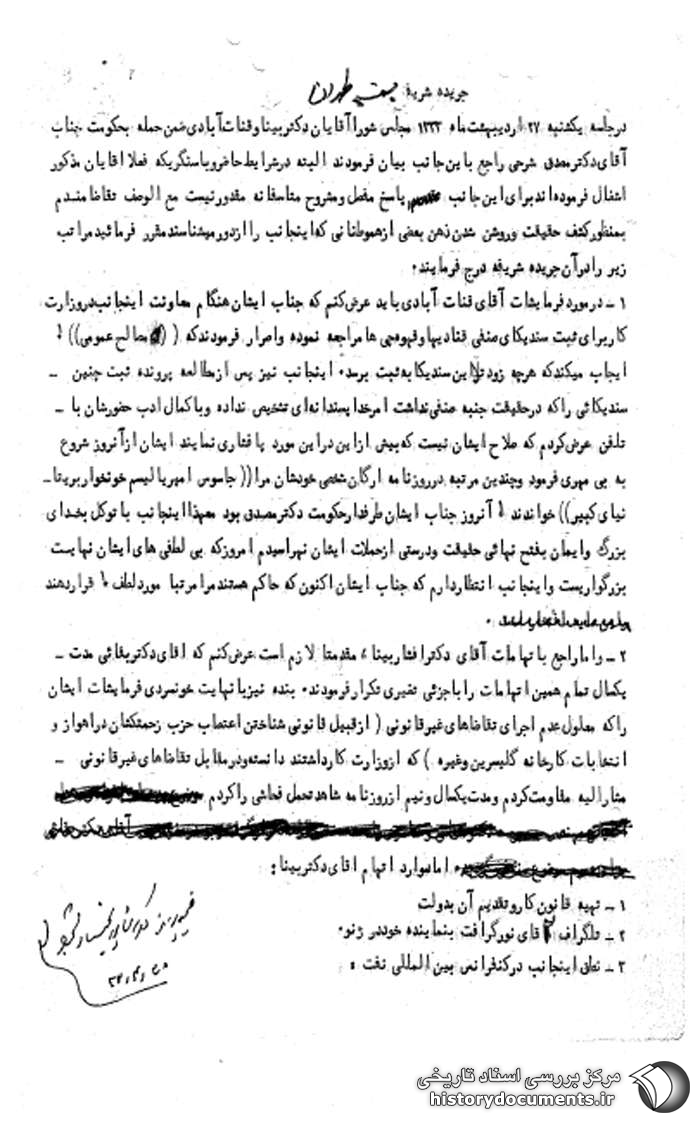 جریده شریفه
در جلسه یکشنبه ۲۷ اردیبهشت ماه ۱۳۳۳ مجلس شورا آقایان دکتر بینا و قنات آبادی ضمن حمله بحکومت جناب
آقای دکتر مصدق شرحی راجع باین جانب بیان فرمودند البته در شرایط حاضر و با سنگریکه فعلا اقایان مذکور
اشغال فرموده اند برای این جانب پاسخ مفصل و مشروح متاسفانه مقدور نیست مع الوصف تقاضا مندم
بمنظور کشف حقیقت و روشن شدن ذهن بعضی از هموطنانی که اینجانب را از دور میشناسند مقرر فرمائید مراتب
زیر را در آن جریده شریفه درج فرمایند.
۱ ـ در مورد فرمایشات آقای قنات آبادی باید عرض کنم که جناب ایشان هنگام معاونت اینجانب در وزارت
کار برای ثبت سندیکای صنفی قنادیها و قهوه چی ها مراجعه نموده و اصرار فرمودند که ( (مصالح عمومی)) !
ایجاب میکند که هرچه زودتر این سندیکا به ثبت برسد. اینجانب نیز پس از مطالعه پرونده ثبت چنین ـ
سندیکائی را که در حقیقت جنبه صنفی نداشت امر خداپسندانه ای تشخیص نداده و با کمال ادب حضورشان با ـ
تلفن عرض کردم که صلاح ایشان نیست که بیش از این در این مورد پافشاری نمایند ایشان از آنروز شروع
به بی مهری فرمود و چندین مرتبه در روزنامه ارگان شخصی خودشان مرا (( جاسوس امپریالیسم خونخوار بریتا ـ
نیای کبیر)) خواندند ! آنروز جناب ایشان طرفدار حکومت دکتر مصدق بود معهذا اینجانب با توکل بخدای
بزرگ و ایمان بفتح نهائی حقیقت و درستی از حملات ایشان نهراسیدم امروز که بی لطفی های ایشان نهایت
بزرگواریست و اینجانب انتظار دارم که جناب ایشان اکنون که حاکم هستند مرا مرتبا مورد لطف ! قرار دهند
۲ ـ و اما راجع باتهامات آقای دکتر افشار بینا، مقدمتا لازم است عرض کنم که اقای دکتر بقائی مدت ـ
یکسال تمام همین اتهامات را با جزئی تغییری تکرار فرمودند. بنده نیز با نهایت خونسردی فرمایشات ایشان
را که معلول عدم اجرای تقاضاهای غیر قانونی ( از قبیل قانونی شناختن اعتصاب حزب زحمتکشان در اهواز و
انتخابات کارخانه گلیسرین و غیره ) که از وزارت کار داشتند دانسته و در مقابل تقاضاهای غیر قانونی ـ
مشارالیه مقاومت کردم و مدت یکسال و نیم از روزنامه شاهد تحمل فحاشی را کردم
آقای دکتر بقائی
اما موارد اتهام اقای دکتر بینا :
۱ ـ تهیه قانون کار و تقدیم آن بدولت
۲ ـ تلگراف آقای نورگرافت بنماینده خود در ژنو.
۳ ـ نطق اینجانب در کنفرانس بین المللی نفت .
مرکز بررسی اسناد تاریخی
historydocuments.ir